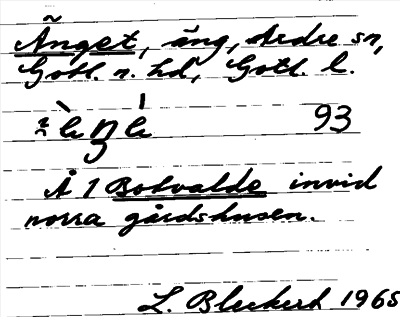 Änget, äng, Ardre sn,
Gotl. n. hd, Gotl. l.
93
Å 1 Botvalde invid
norra gårdshusen.
L. Bleckert 1965